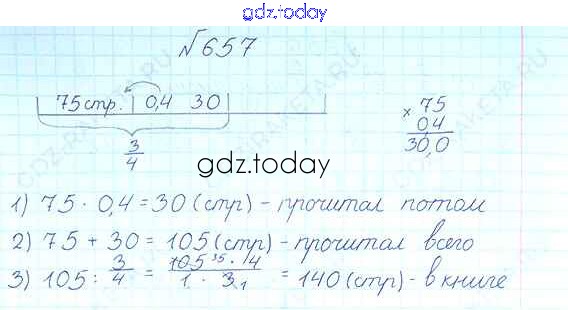 gdz.today
№657
75 стр. 0,4 30
3
4
× 75
0,4
30,0
gdz.today
1) 75 · 0,4 = 30 (стр) - прочитал потом
2) 75 + 30 = 105 (стр) - прочитал всего
3) 105 : 3/4 = 105 35 · 4 / 1 · 3 1 = 140 (стр) - в книге